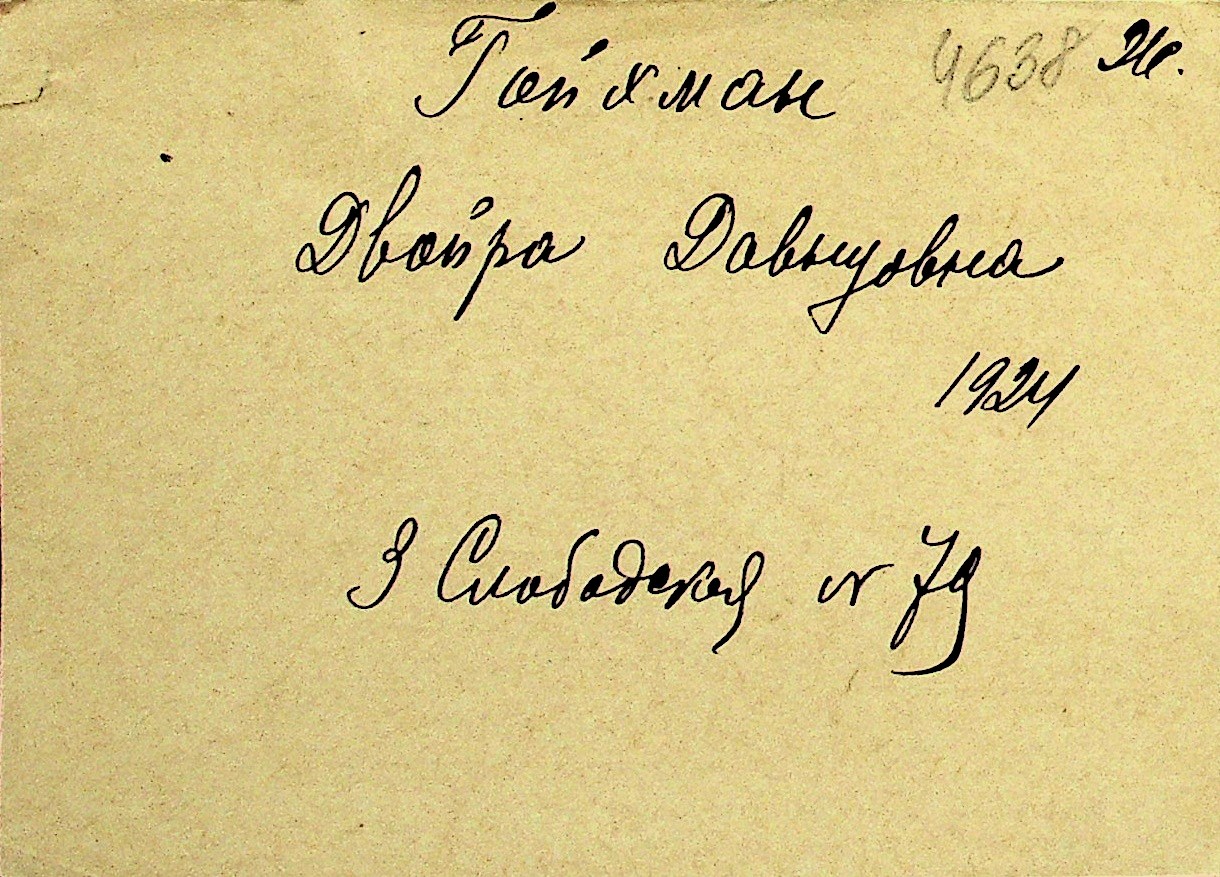 Гойхман 4638 Ж.
Двойра Давыдовна
1924
3 Слободская № 79